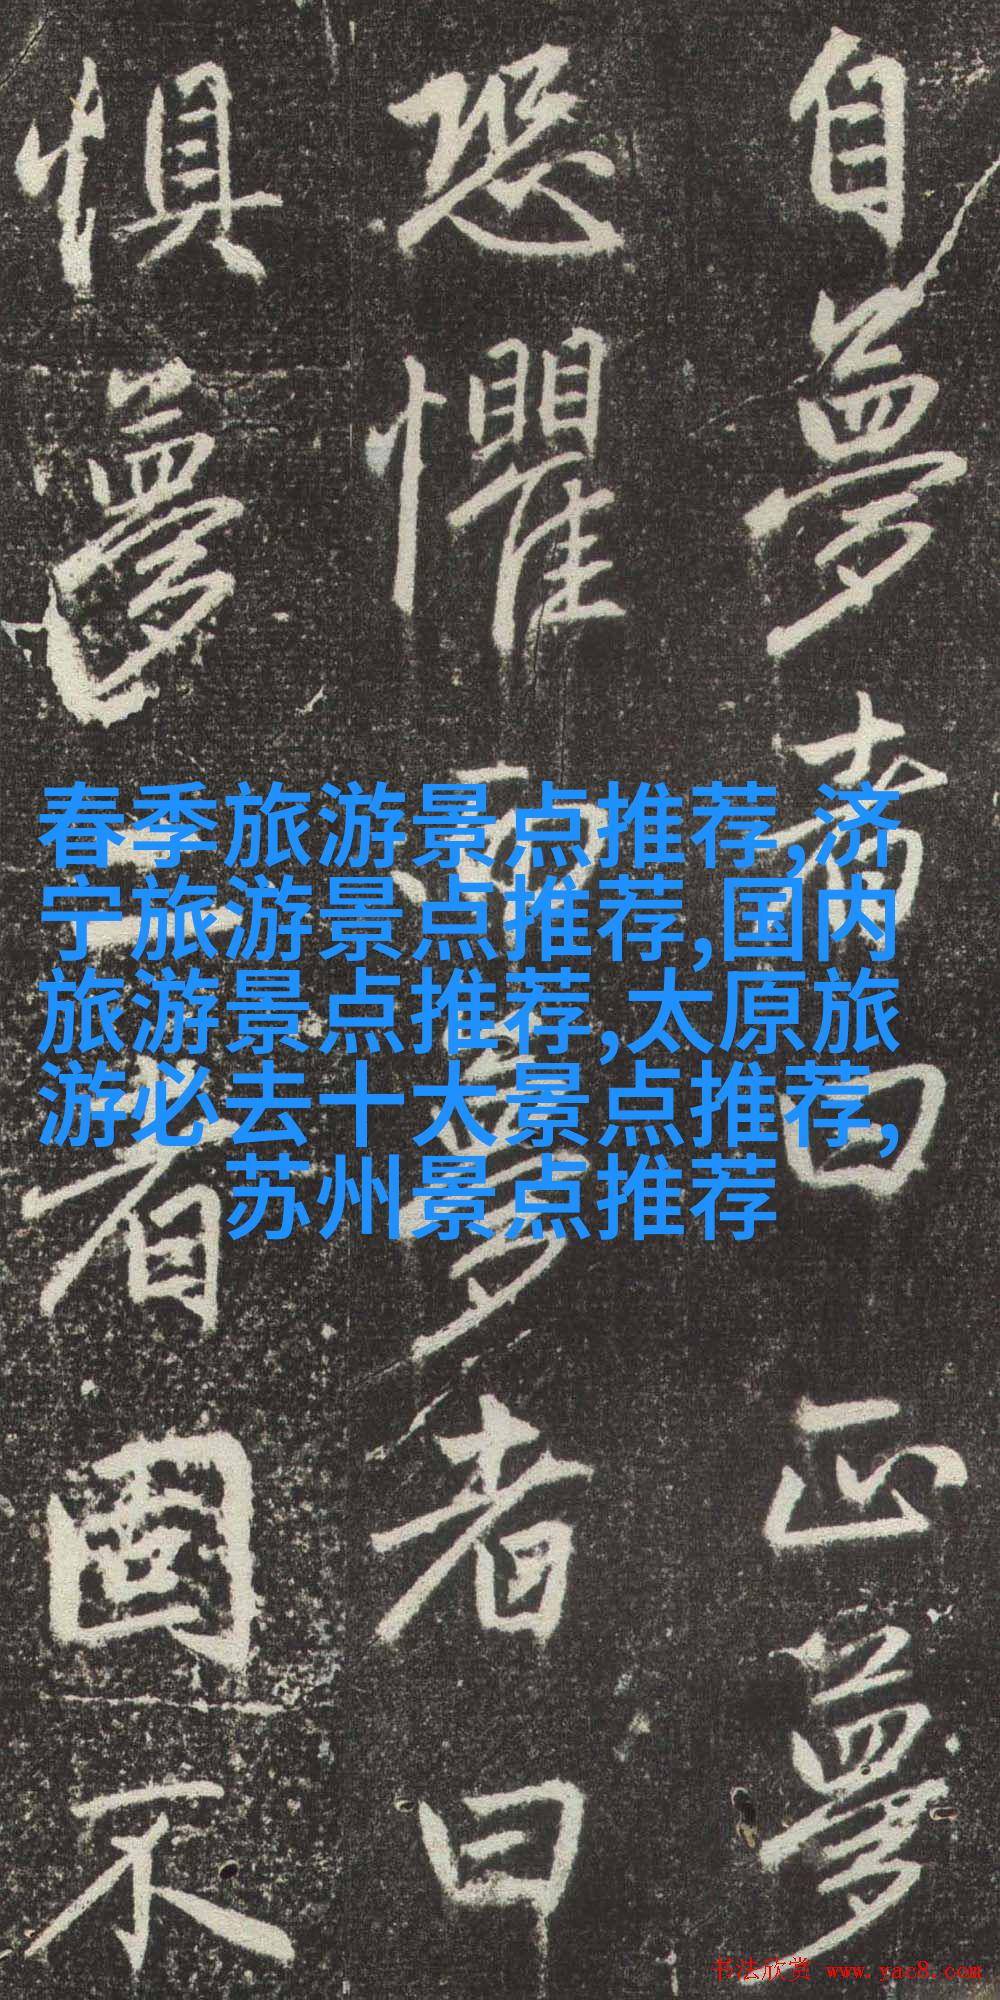 自夢者曰正夢
恐懼而夢者曰
惧夢者固不
春季旅游景点推荐,济
宁旅游景点推荐,国内
旅游景点推荐,太原旅
游必去十大景点推荐,
苏州景点推荐
书法欣赏 www.yac8.com